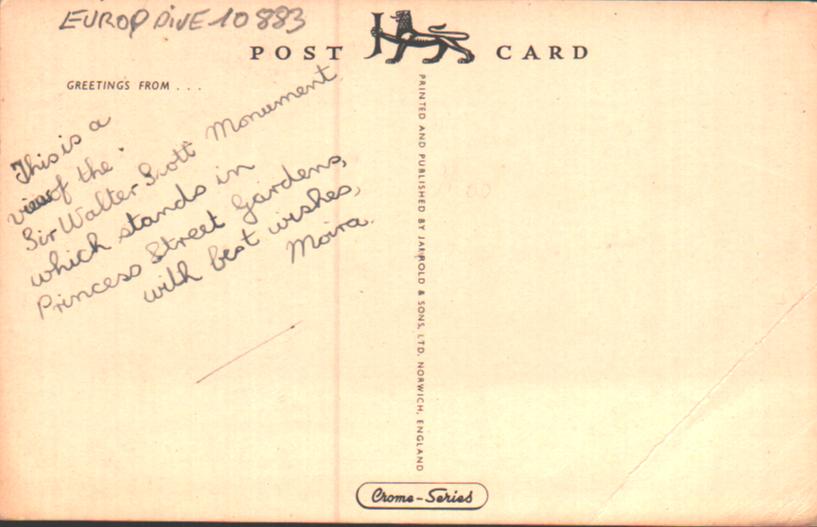 EUROP DIVE 10883
POST CARD
GREETINGS FROM . . .
This is a
view of the
Sir Walter Scott Monument
which stands in
Princess Street Gardens,
with best wishes,
Moira.
PRINTED AND PUBLISHED BY JARROLD & SONS, LTD. NORWICH, ENGLAND
Crome-Series